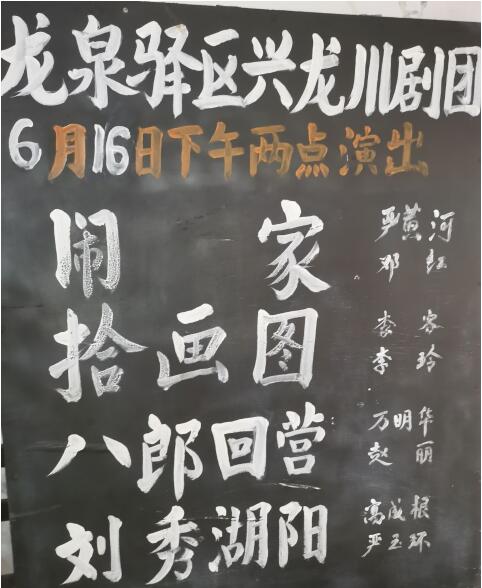 龙泉驿区兴龙川剧团
6月16日下午两点演出
闹家
严黄河
邓红
拾画图
李客
李玲
八郎回营
万明华
赵丽
刘秀湖阳
高成根
严玉环